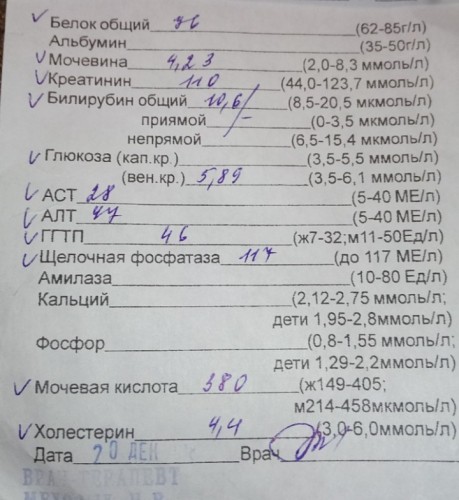 Белок общий 76 (62-85г/л)
Альбумин (35-50г/л)
Мочевина 4,23 (2,0-8,3 ммоль/л)
Креатинин 110 (44,0-123,7 ммоль/л)
Билирубин общий 10,6 (8,5-20,5 мкмоль/л)
прямой - (0-3,5 мкмоль/л)
непрямой (6,5-15,4 мкмоль/л)
Глюкоза (кап.кр.) (3,5-5,5 ммоль/л)
(вен.кр.) 5,89 (3,5-6,1 ммоль/л)
АСТ 28 (5-40 МЕ/л)
АЛТ 47 (5-40 МЕ/л)
ГГТП 46 (ж7-32;м11-50Ед/л)
Щелочная фосфатаза 117 (до 117 МЕ/л)
Амилаза (10-80 Ед/л)
Кальций (2,12-2,75 ммоль/л;
дети 1,95-2,8ммоль/л)
Фосфор (0,8-1,55 ммоль/л;
дети 1,29-2,2ммоль/л)
Мочевая кислота 380 (ж149-405;
м214-458мкмоль/л)
Холестерин 4,4 (3,0-6,0ммоль/л)
Дата 20 ДЕК Врач
ВРАЧ ТЕРАПЕВТ